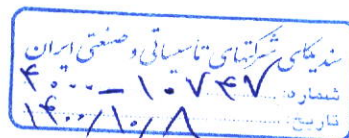 سندیکای شرکتهای تأسیساتی و صنعتی ایران
شماره: ۴۰۰۰-۱۰۷۴۷
تاریخ: ۱۴۰۰/۱۰/۸